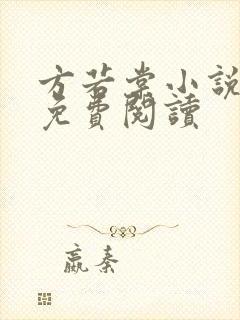 方若棠小說
免費閱讀
嬴秦